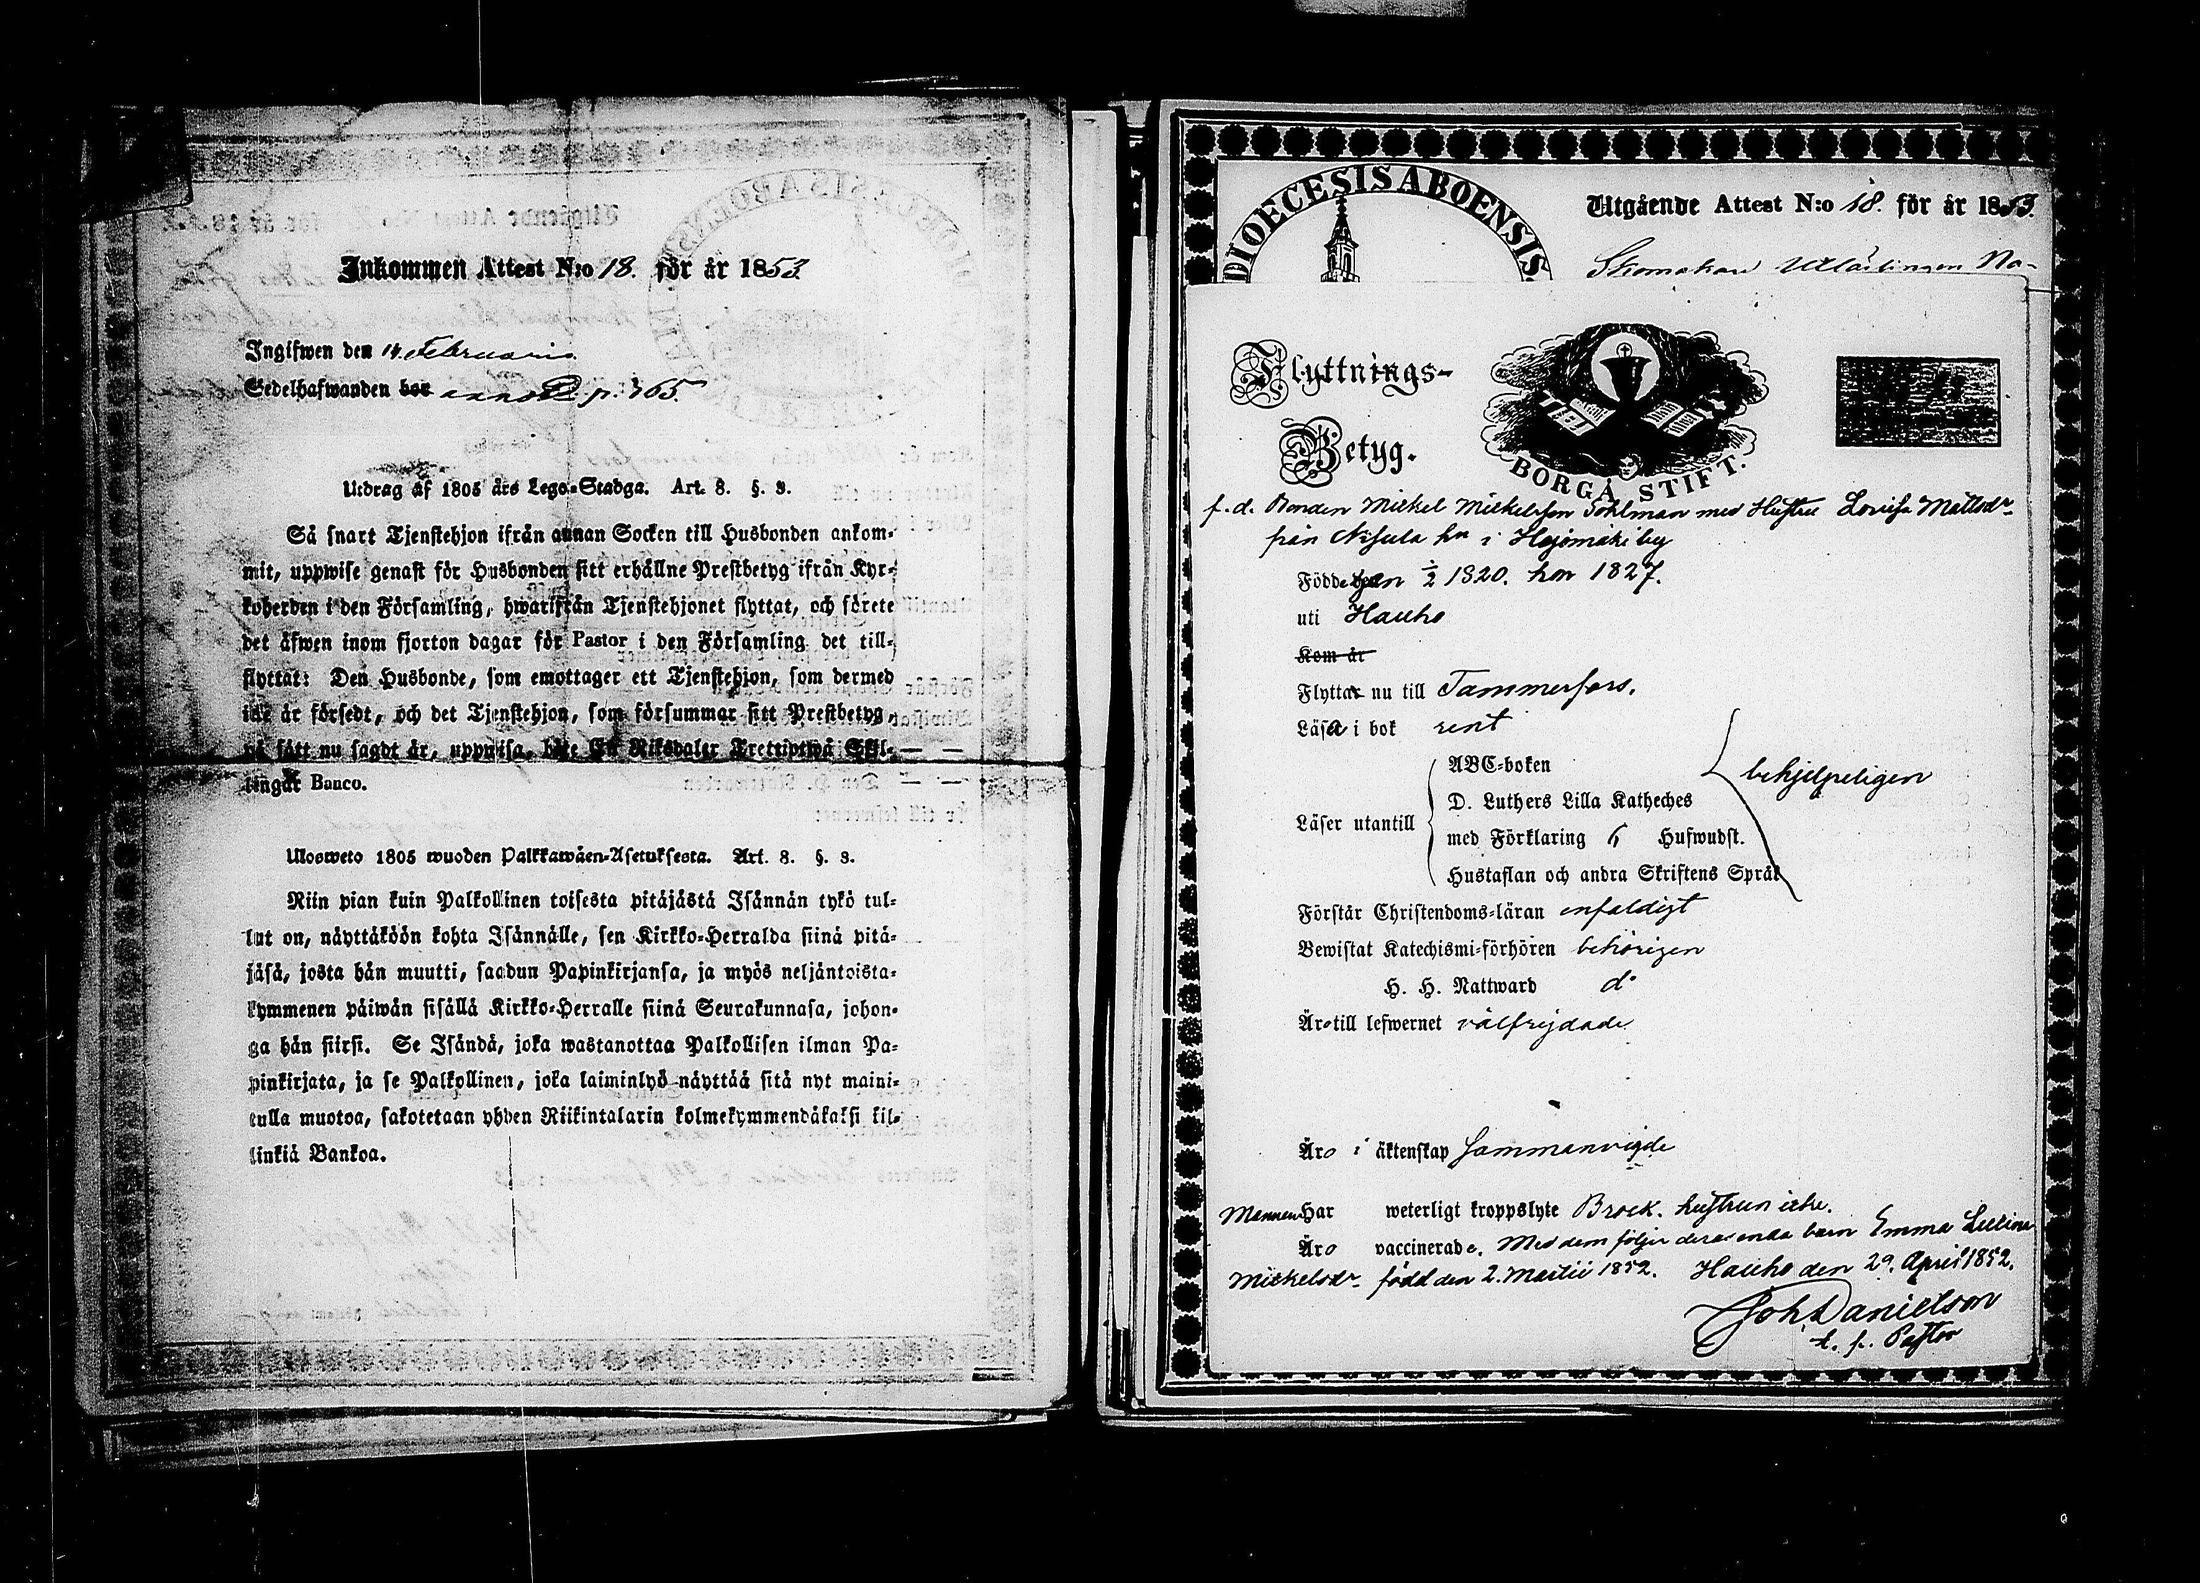 Inkommen Attest N:o 18. för år 1853
Ingifwen den 14 Februarii
Sedelhafwanden bor p. 365.
Utdrag af 1805 års Lego-Stadga. Art. 8. §. 3.
Så snart Tjenstehjon ifrån annan Socken till Husbonden ankom-
mit, uppwise genast för Husbonden sitt erhållne Prestbetyg ifrån Kyr-
koherden i den Församling, hwarifrån Tjenstehjonet flyttat, och förete
det äfwen inom fjorton dagar för Pastor i den Församling det till-
flyttat: Den Husbonde, som emottager ett Tjenstehjon, som dermed
icke är försedt, och det Tjenstehjon, som försummar sitt Prestbetyg,
på sätt nu sagdt är, uppwisa, böte En Riksdaler Trettiotwå Skil-
lingar Banco.
Ulosweto 1805 wuoden Palkkawäen-Asetuksesta. Art. 8. §. 3.
Niin pian kuin Palkollinen toisesta pitäjästä Isännän tykö tul-
lut on, näyttäköön kohta Isännälle, sen Kirkko-Herralda siinä pitä-
jäsä, josta hän muutti, saadun Papinkirjansa, ja myös neljäntoista-
kymmenen päiwän sisällä Kirkko-Herralle siinä Seurakunnasa, johon-
ga hän siirsi. Se Isändä, joka wastanottaa Palkollisen ilman Pa-
pinkirjata, ja se Palkollinen, joka laiminlyö näyttää sitä nyt maini-
tulla muotoa, sakotetaan yhden Riikintalarin kolmekymmendäkaksi kil-
linkiä Bankoa.
DIOECESIS ABOENSIS
Utgående Attest N:o 18. för år 1853.
Skomakare Utlärlingen No-
Flyttnings-
Betyg.
BORGÅ STIFT.
f. d. Bonden Mickel Mickelsson Sohlman med Hustru Lovisa Mattsdr
från Nisula hn i Hyömäki by
Född 1/2 1820. hon 1827.
uti Hauho
Kom år
Flytta nu till Tammerfors.
Läsa i bok rent
ABC-boken
D. Luthers Lilla Katheches
Läser utantill
med Förklaring 6 Hufwudst.
Hustaflan och andra Skriftens Språk
behjelpeligen
Förstår Christendoms-läran enfaldigt
Bewistat Katechismi-förhören behörigen
H. H. Nattward do
Äro till lefwernet välfrejdade
Äro i äktenskap Sammanvigde
Mannen Har weterligt kroppslyte Brock. hustrun icke.
Äro vaccinerade. Med dem följer deras enda barn Emma
Mickelsdr född den 2. Martii 1852. Hauho den 29. April 1852.
Joh Danielson
t. f. Pastor